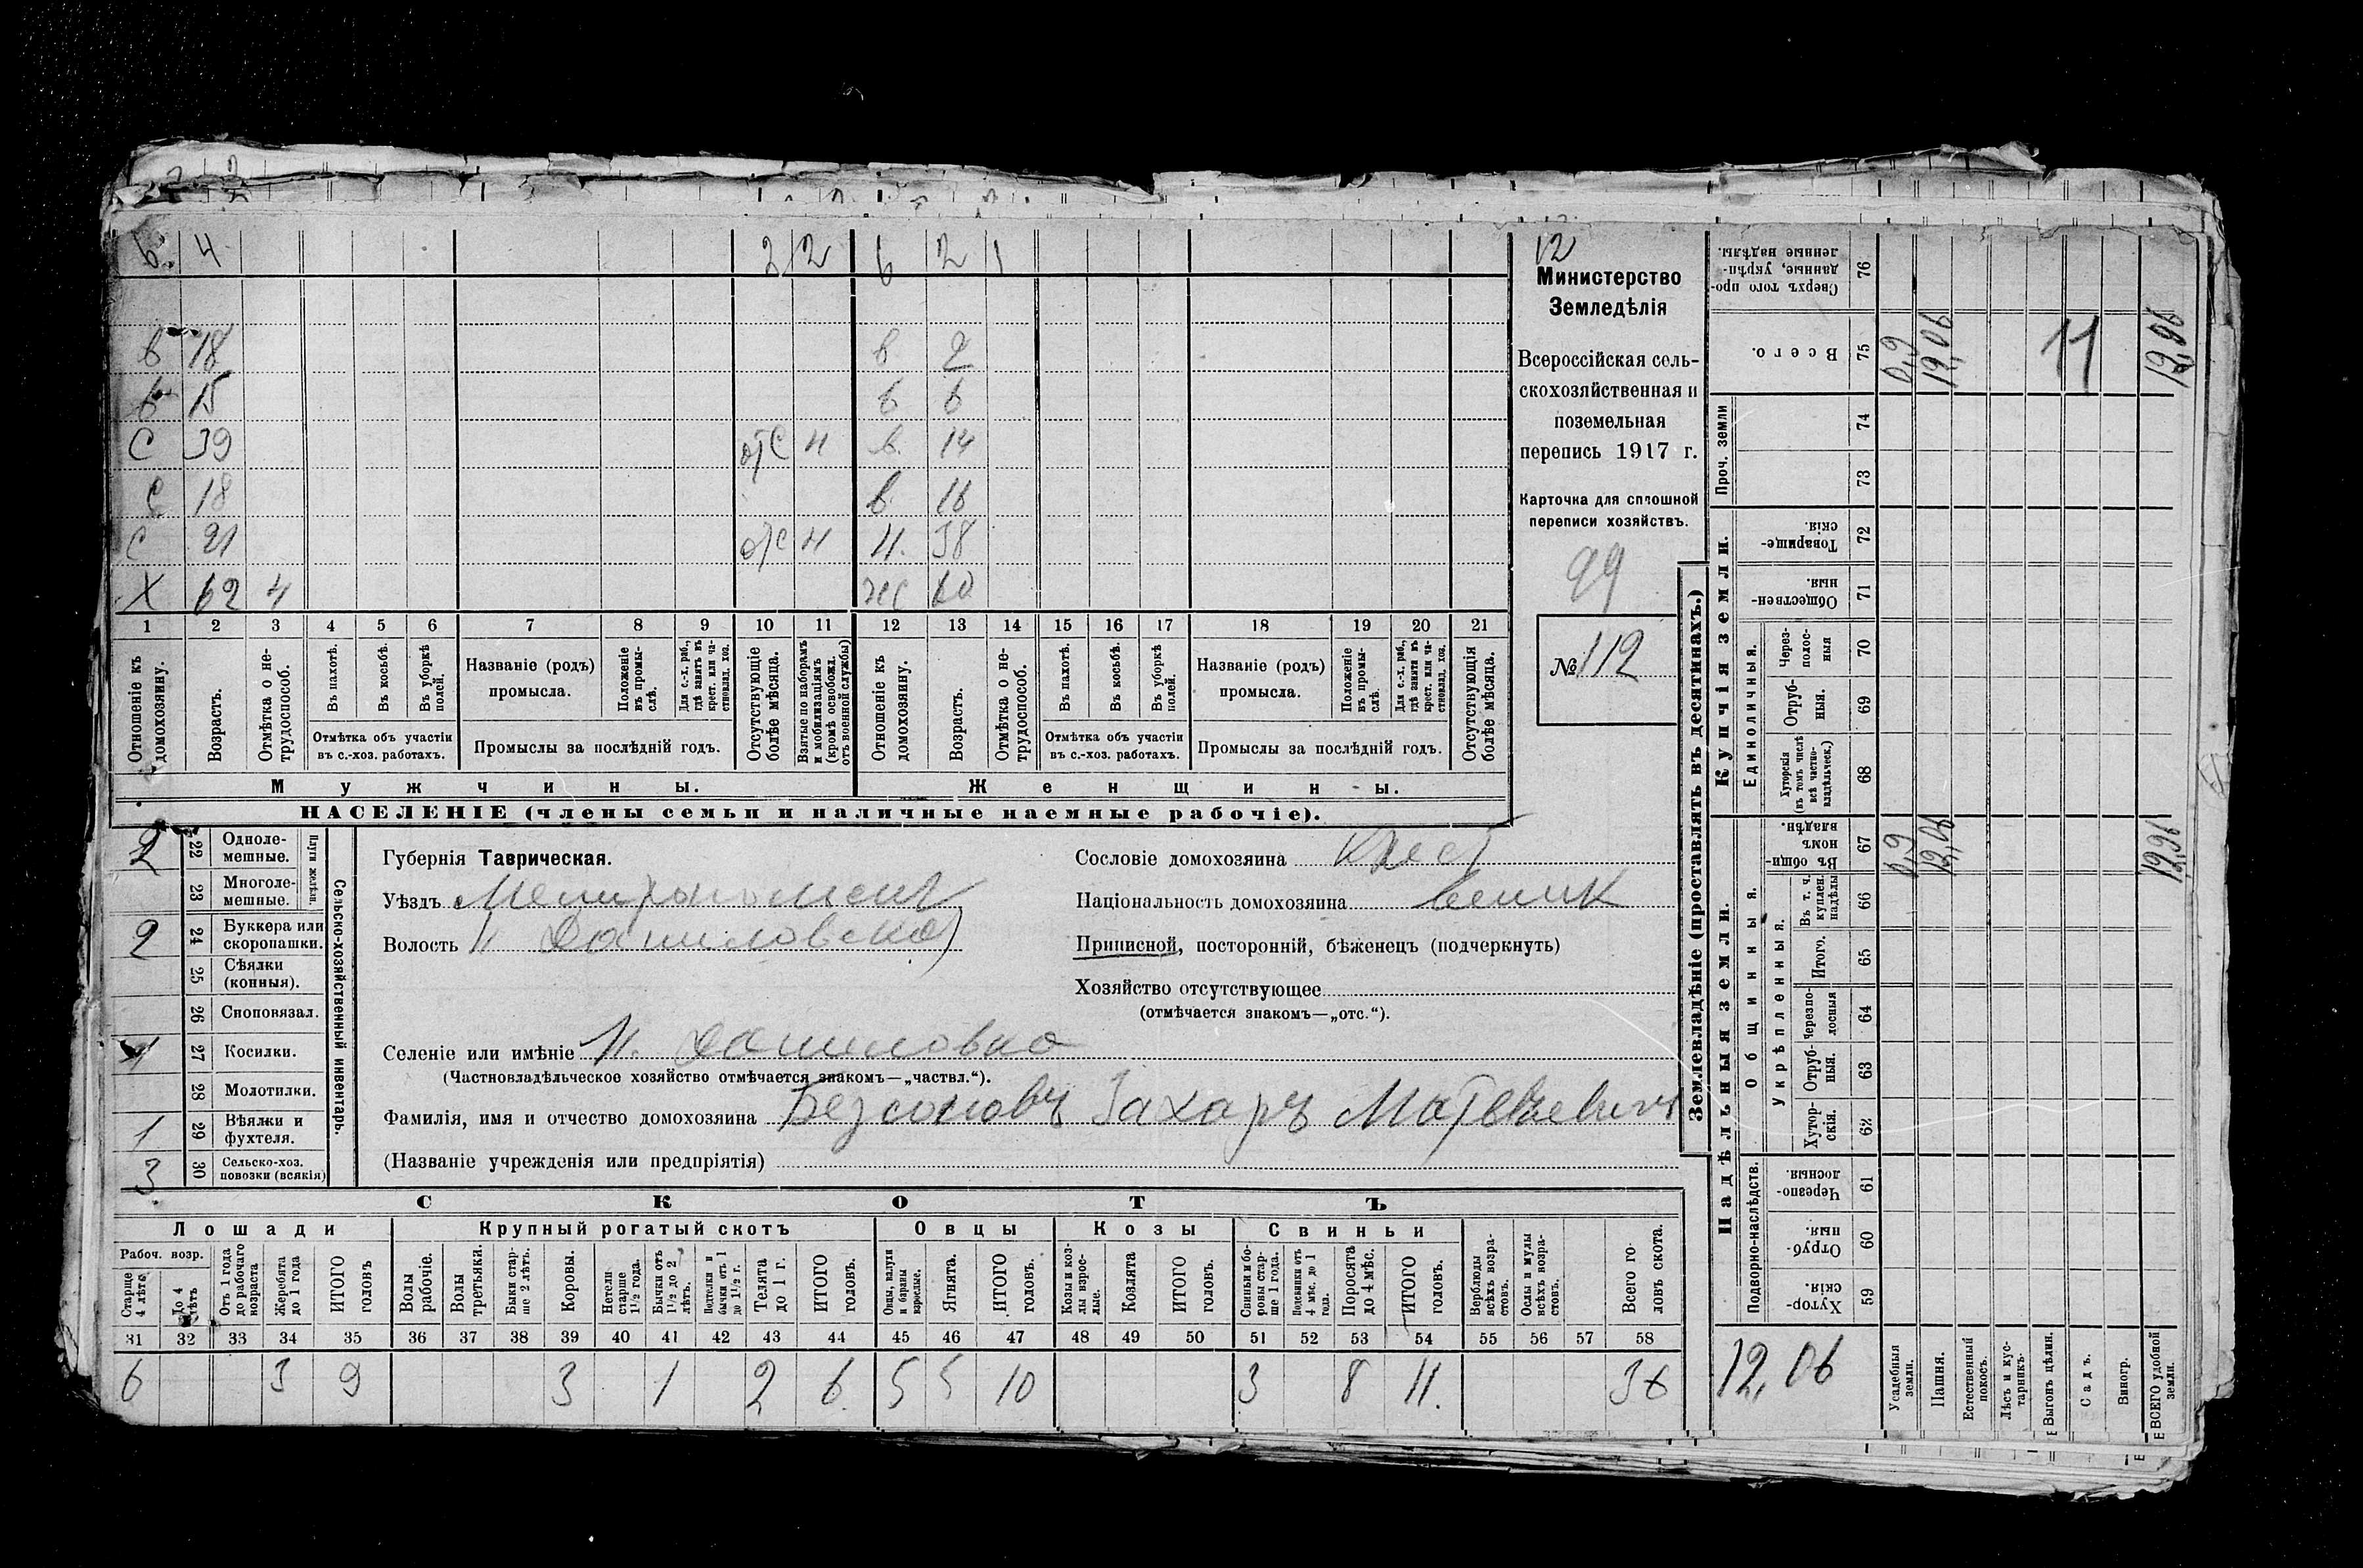 6 4 2 2 6 2 1
в 18 в 2
в 15 6 6
С 39 отс н в. 14
С 18 в. 16
С 21 отс н н. 38
Х 62 4 жс 60
1 2 3 4 5 6 7 8 9 10 11 12 13 14 15 16 17 18 19 20 21
Отношеніе къ домохозяину.
Возрастъ.
Отмѣтка о не-трудоспособ.
Въ пахотѣ.
Въ косьбѣ.
Въ уборкѣ полей.
Отмѣтка объ участіи
въ с.-хоз. работахъ.
Названіе (родъ)
промысла.
Положеніе въ промы-слѣ.
Для с.-х. раб., гдѣ занятъ въ крест. или ча-стновлад. хоз.
Промыслы за послѣдній годъ.
Отсутствующіе болѣе мѣсяца.
Взятые по наборамъ и мобилизаціямъ (кромѣ освобожд. отъ военной службы)
Отношеніе къ домохозяину.
Возрастъ.
Отмѣтка о не-трудоспособ.
Въ пахотѣ.
Въ косьбѣ.
Въ уборкѣ полей.
Отмѣтка объ участіи
въ с.-хоз. работахъ.
Названіе (родъ)
промысла.
Положеніе въ промы-слѣ.
Для с.-х. раб., гдѣ заняты въ крест. или ча-стновлад. хоз.
Промыслы за послѣдній годъ.
Отсутствующія болѣе мѣсяца.
Мужчины. Женщины.
НАСЕЛЕНІЕ (члены семьи и наличные наемные рабочіе).
12
Министерство
Земледѣлія
Всероссійская сель-
скохозяйственная и
поземельная
перепись 1917 г.
Карточка для сплошной
переписи хозяйствъ.
99
№ 112
2 22 Одноле-мешные.
23 Многоле-мешные.
Плуги желѣзн.
2 24 Буккера или скоропашки.
25 Сѣялки (конныя).
26 Сноповязал.
1 27 Косилки.
28 Молотилки.
1 29 Вѣялки и фухтеля.
3 30 Сельско-хоз. повозки (всякія)
Сельско-хозяйственный инвентарь.
Губернія Таврическая.
Уѣздъ Мелитопольскій
Волость Н Даниловская
Селеніе или имѣніе Н. Даниловка
(Частновладѣльческое хозяйство отмѣчается знакомъ—„частвл.“).
Фамилія, имя и отчество домохозяина Безсоновъ Захаръ Матвѣевичъ
(Названіе учрежденія или предпріятія)
Сословіе домохозяина Крест
Національность домохозяина велик
Приписной, посторонній, бѣженецъ (подчеркнуть)
Хозяйство отсутствующее
(отмѣчается знакомъ—„отс.“).
СКОТЪ
Лошади Крупный рогатый скотъ Овцы Козы Свиньи
Рабоч. возр.
Старше 4 лѣтъ
До 4 лѣтъ
Отъ 1 года до рабочаго возраста
Жеребята до 1 года
ИТОГО головъ
Волы рабочіе.
Волы третьяки.
Быки стар-ше 2 лѣтъ.
Коровы.
Нетели старше 1½ года.
Бычки отъ 1½ до 2 лѣтъ.
Подтелки и бычки отъ 1 до 1½ г.
Телята до 1 г.
ИТОГО головъ.
Овцы, валухи и бараны взрослые.
Ягнята.
ИТОГО головъ.
Козы и коз-лы взрос-лые.
Козлята
ИТОГО головъ.
Свиньи и бо-ровы стар-ше 1 года.
Подсвинки отъ 4 мѣс. до 1 года.
Поросята до 4 мѣс.
ИТОГО головъ.
Верблюды всѣхъ возра-стовъ.
Ослы и мулы всѣхъ возра-стовъ.
Всего го-ловъ скота.
31 32 33 34 35 36 37 38 39 40 41 42 43 44 45 46 47 48 49 50 51 52 53 54 55 56 57 58
6 3 9 3 1 2 6. 5 5 10 3 8 11. 36
Землевладѣніе (проставлять въ десятинахъ.)
Купчія земли.
Надѣльныя земли.
Сверхъ того про-данные, укрѣп-ленные надѣлы. 76
Всего. 75 0,9 12,06 11 12,96
Проч. земли 74
73
Товарище-скія. 72
Обществен-ныя. 71
Единоличныя.
Через-полос-ныя 70
Отруб-ныя. 69
Хуторскія (въ томъ числѣ всѣ частно-владѣльческ.) 68
Общинныя.
Въ общин-номъ владѣн. 67 0,9 12,06 12,96
Укрѣпленныя.
Въ т. ч. куплен. надѣлы 66
Итого. 65
Черезпо-лосныя 64
Отруб-ныя. 63
Хутор-скія. 62
Подворно-наслѣдств.
Черезпо-лосныя 61
Отруб-ныя. 60
Хутор-скія. 59
12,06
Усадебныя земли.
Пашня.
Естественный покосъ.
Лѣсъ и кус-тарникъ.
Выгонъ цѣлин.
Садъ.
Виногр.
ВСЕГО удобной земли.